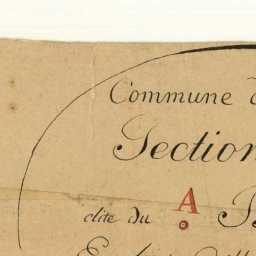 Commune d
Section
dite du
A